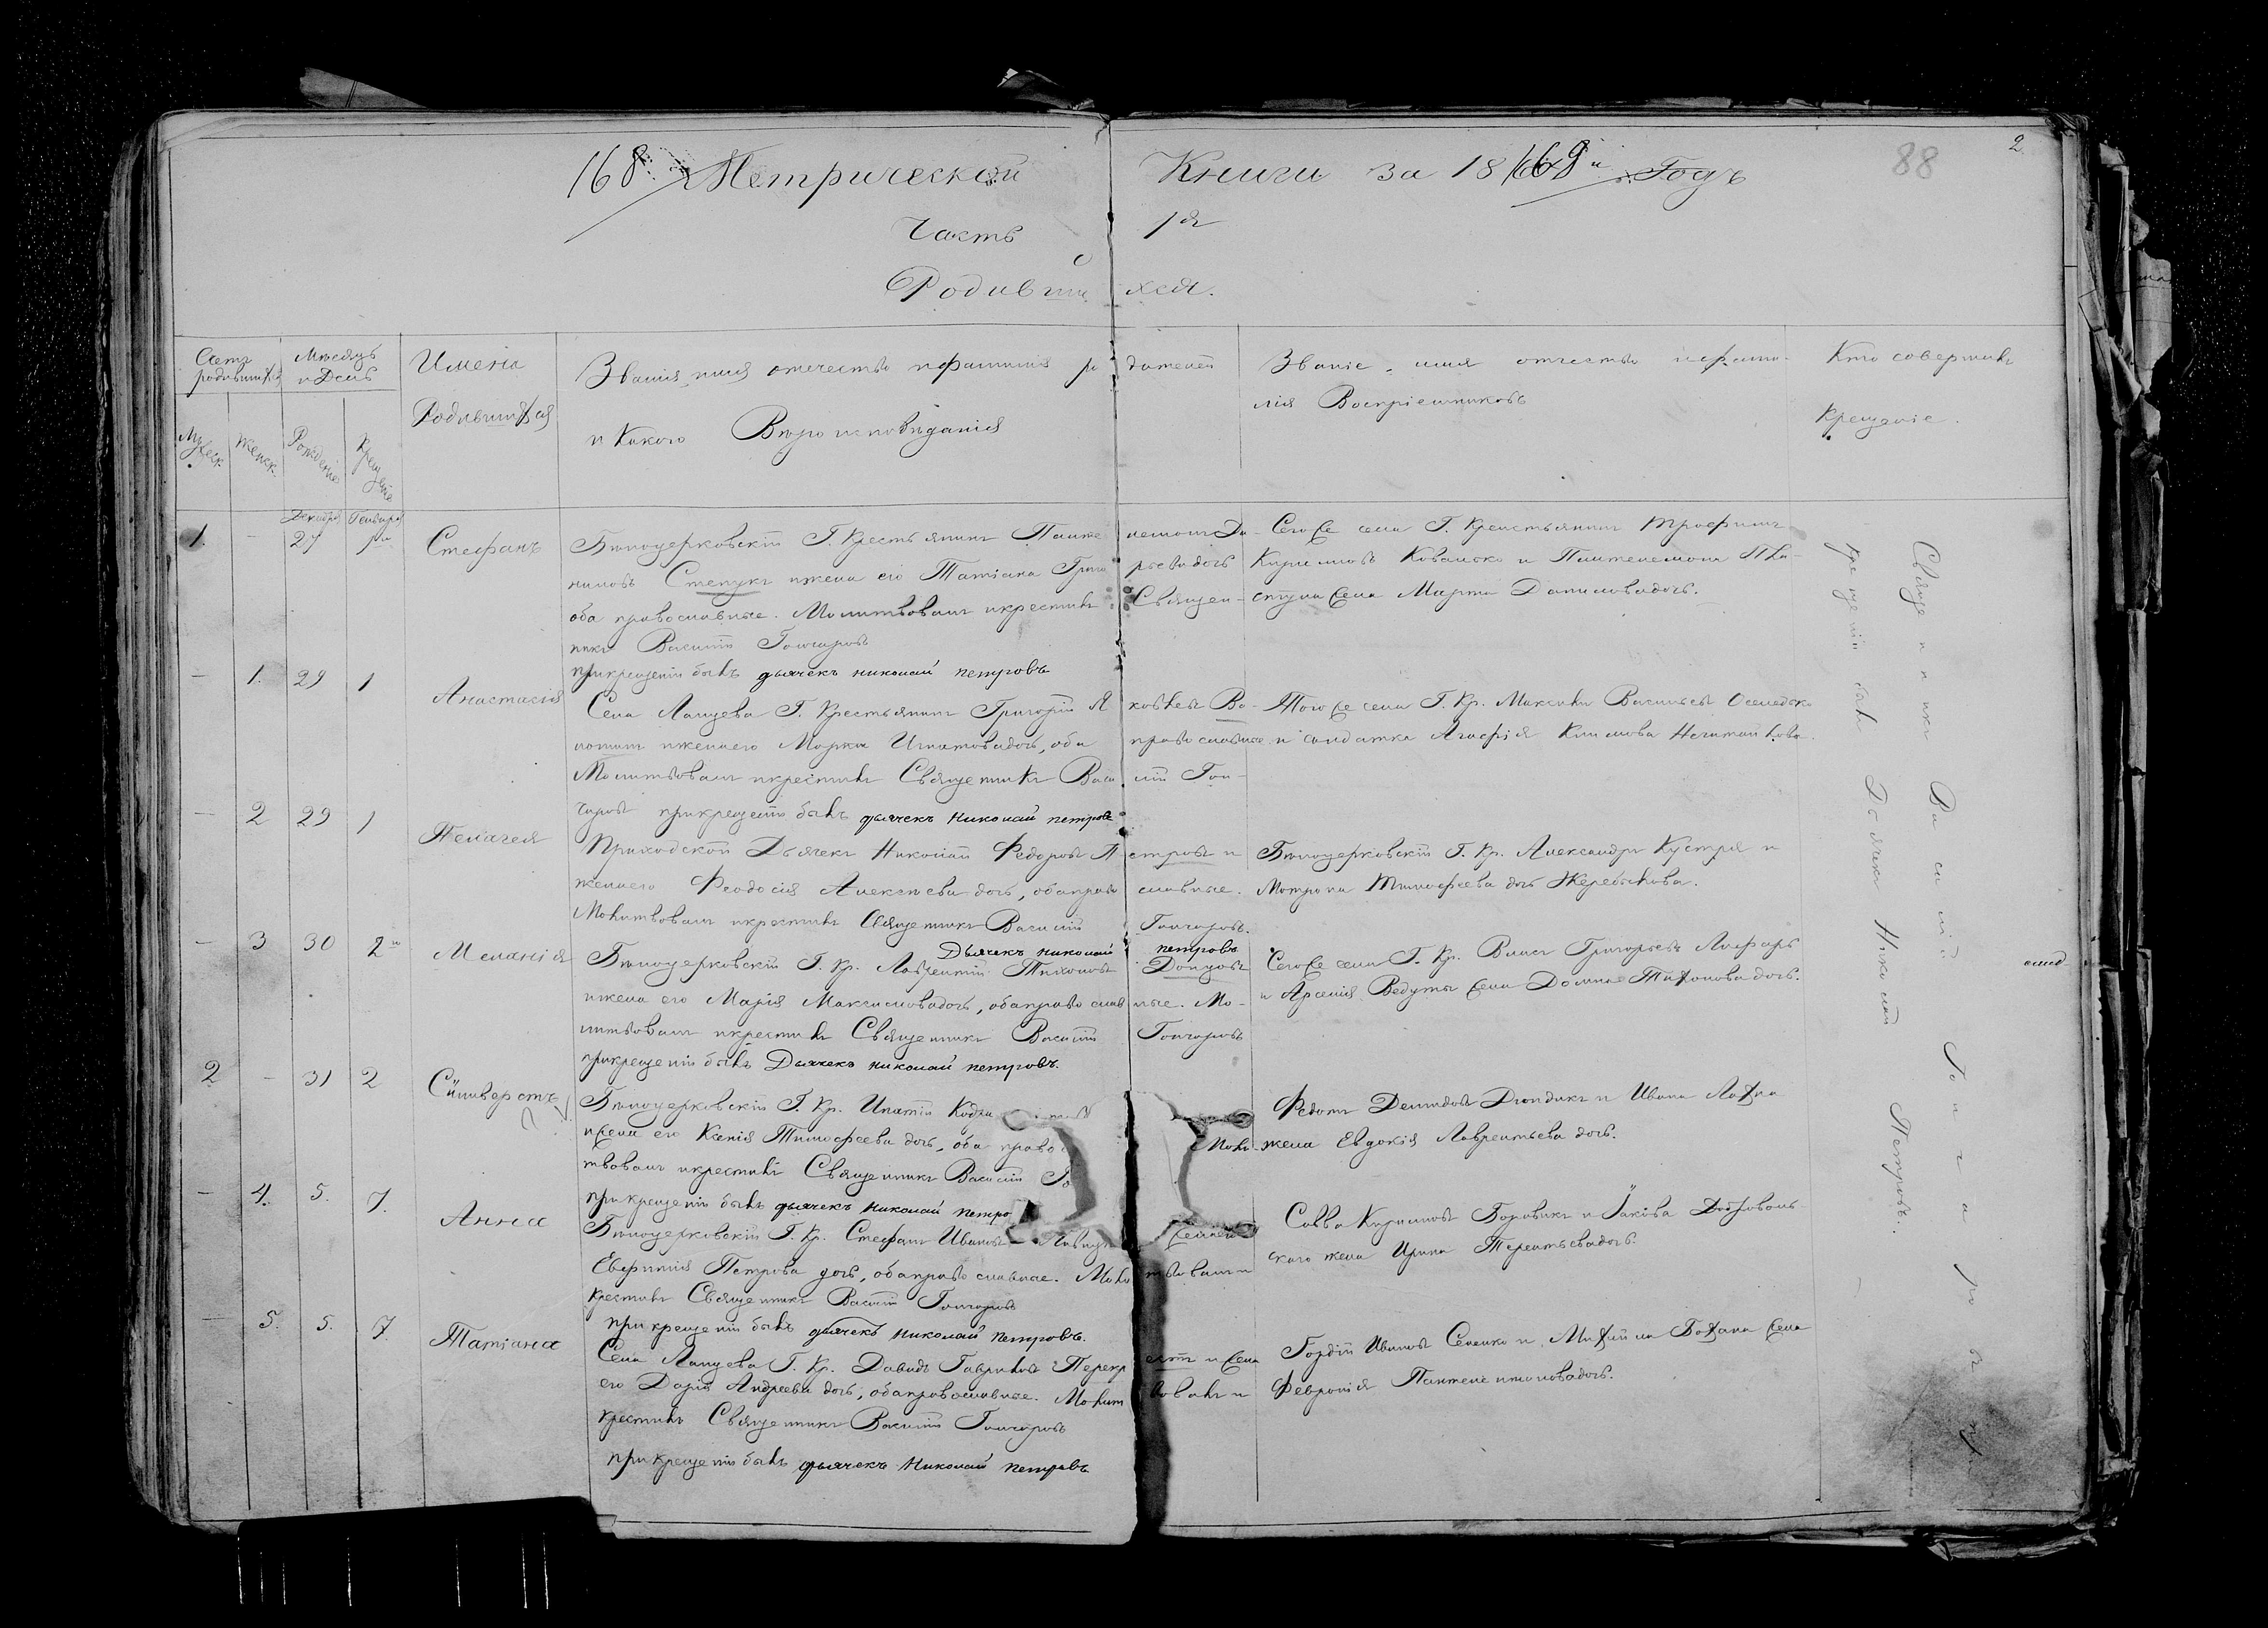 2
88
168 Метрической Книги за 1868й Годъ
Часть 1я
Родившихся.
Счетъ родившихся
Мѣсяцъ и День
Имена Родившихся
Званія, имя отечество и фамилия родителей
и Какого Вѣроисповѣданія
Званіе, имя отчество и фами-
лія Воспріемниковъ
Кто совершилъ
Крещеніе.
Мужеск
Женск.
Рожденіе
Крещение
Декабря Генваря
1. - 27 1го Стефанъ
Бѣлоцерковскій Г. Крестьянинъ Панте-
ле
ихъ Степукъ и жена его Татіана Григорьева дочь
оба православные. Молитвовалъ и крестилъ Священ-
никъ Василій Гончаровъ
при крещеніи былъ дьячекъ николай петровъ
Сегоже села Г. Крестьянинъ Трофимъ
Кириловъ Ковалько и Пантелемона
жена Марта Даниловадочь.
- 1. 29 1 Анастасія
Села Лапцева Г. Крестьянинъ Григорій Яковлевъ
и жена его Марѳа Игнатовадочь, оба православные
Молитвовалъ и крестилъ Священникъ Василій Гон-
чаровъ при крещеніи былъ дьячекъ николай петровъ
Того же села Г. Кр. Максимъ Васильевъ Оселедько
и солдатка Агафія Климова
- 2 29 1 Пелагея
Приходской Дьячекъ Николай Федоровъ Петровъ и
жена его Феодосія Алексѣева дочь, оба православные.
Молитвовалъ и крестилъ Священникъ Василій Гончаровъ.
Дьячекъ николай петровъ
Бѣлоцерковскій Г. Кр. Александръ Кустря и
Мотрона Тимофеева дочь Жеребылова.
- 3 30 2й Меланія
Бѣлоцерковскій Г. Кр. Лаврентій Тихоновъ Донцовъ
и жена его Марія Максимовадочь, оба православные. Мо-
литвовалъ и крестилъ Священникъ Василій Гончаровъ
при крещеніи былъ Дьячекъ николай петровъ.
Сегоже села Г. Кр. Власъ Григорьевъ Лифарь
и Арсенія Ведуты жена Домна Тихонова дочь.
2 - 31 2 Силиверстъ
Бѣлоцерковскій Г. Кр. Игнатій
и жена его Ксенія Тимофеева дочь, оба право
Моли-
твовалъ и крестилъ Священникъ Василій Го
при крещеніи былъ дьячекъ николай петро
Федотъ Демидовъ Дюндикъ и Ивана
жена Евдокія Лаврентьева дочь.
- 4. 5. 7. Анна
Бѣлоцерковскій Г. Кр. Стефанъ Ивановъ
Евфимія Петрова дочь, оба православные. Молитвовалъ и
крестилъ Священникъ Василій Гончаровъ
при крещеніи былъ дьячекъ николай петровъ.
Савва Кириловъ Боровикъ и Іакова Доброволь-
скаго жена Ирина Терентьевадочь.
- 5. 5. 7 Татіана
Села Лапцева Г. Кр. Давидъ Гавриловъ Перехрестъ и жена
его Дарія Андреева дочь, оба православные. Молитвовалъ и
крестилъ Священникъ Василій Гончаровъ
при крещеніи былъ дьячекъ николай петровъ
Гордій Ивановъ Семенко и Михаила Божана жена
Февронія Пантелеимоновадочь.
Священникъ Василій Гончаровъ при
крещеніи былъ Дьячекъ Николай Петровъ.